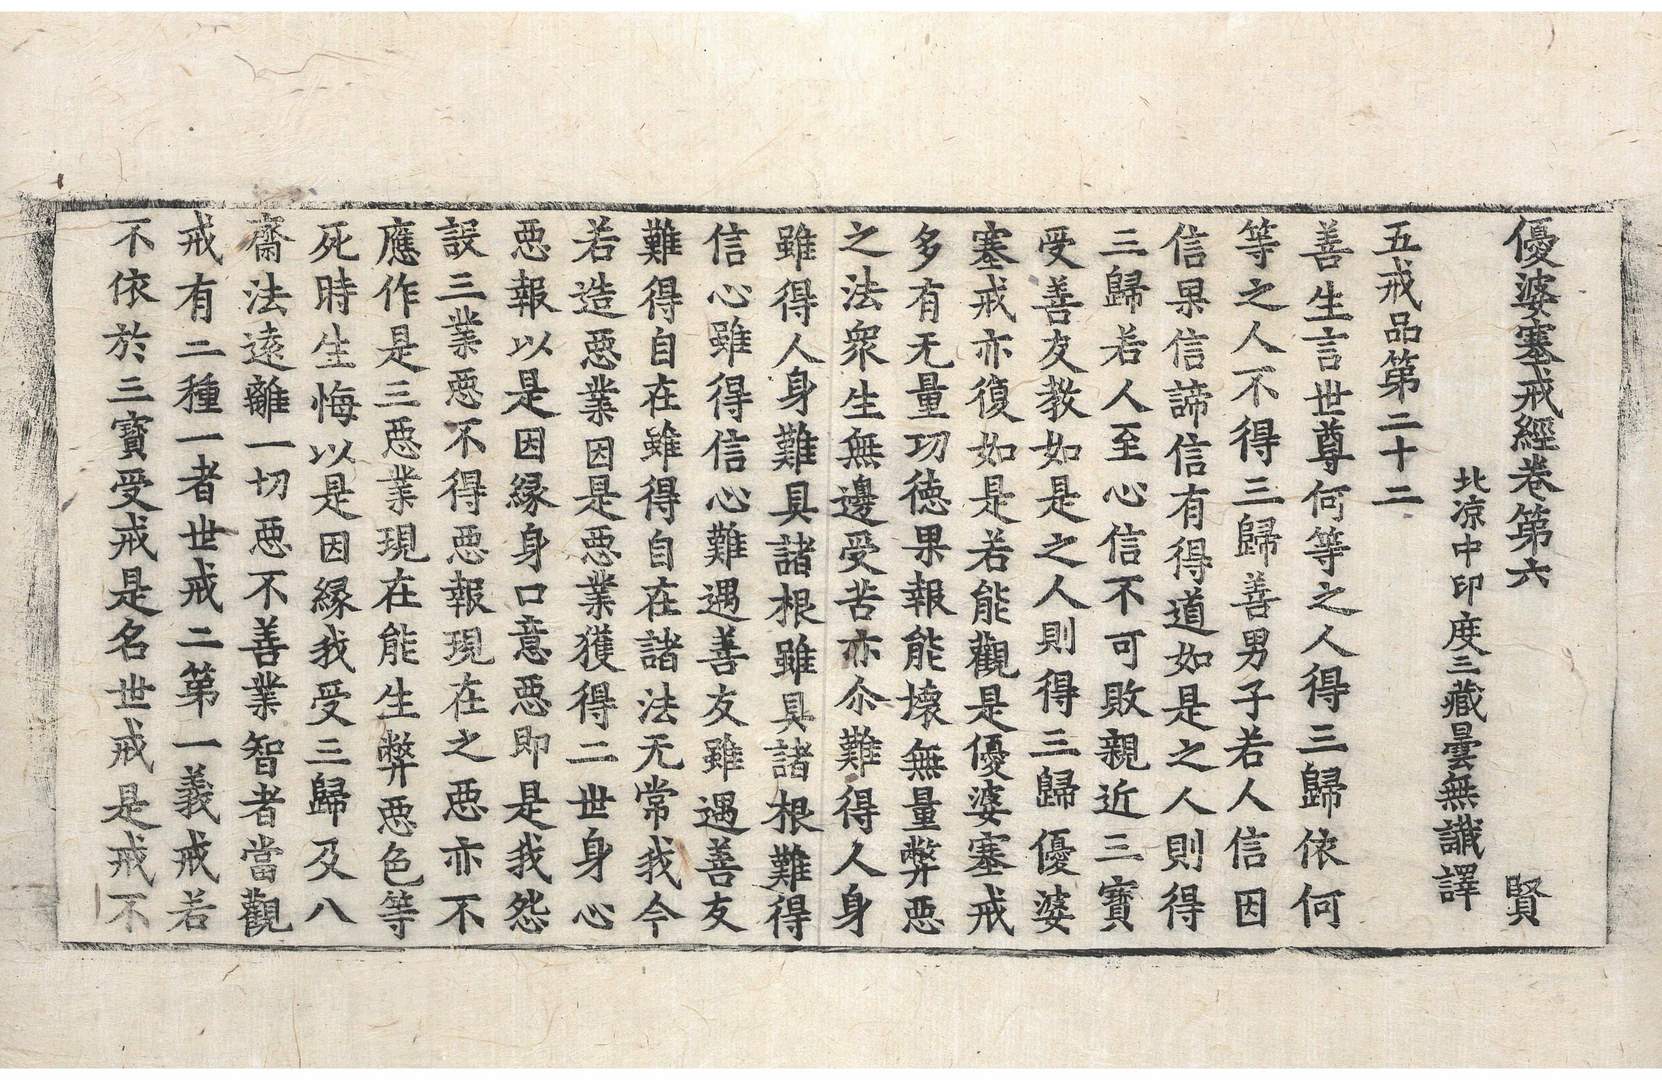 優婆塞戒經卷第六 賢
北涼中印度三藏曇無讖譯
五戒品第二十二
善生言世尊何等之人得三歸依何
等之人不得三歸善男子若人信因
信果信諦信有得道如是之人則得
三歸若人至心信不可敗親近三寶
受善友教如是之人則得三歸優婆
塞戒亦復如是若能觀是優婆塞戒
多有无量功德果報能壞無量弊惡
之法衆生無邊受苦亦尒難得人身
雖得人身難具諸根雖具諸根難得
信心雖得信心難遇善友雖遇善友
難得自在雖得自在諸法无常我今
若造惡業因是惡業獲得二世身心
惡報以是因緣身口意惡即是我怨
設三業惡不得惡報現在之惡亦不
應作是三惡業現在能生弊惡色等
死時生悔以是因緣我受三歸及八
齋法遠離一切惡不善業智者當觀
戒有二種一者世戒二第一義戒若
不依於三寶受戒是名世戒是戒不